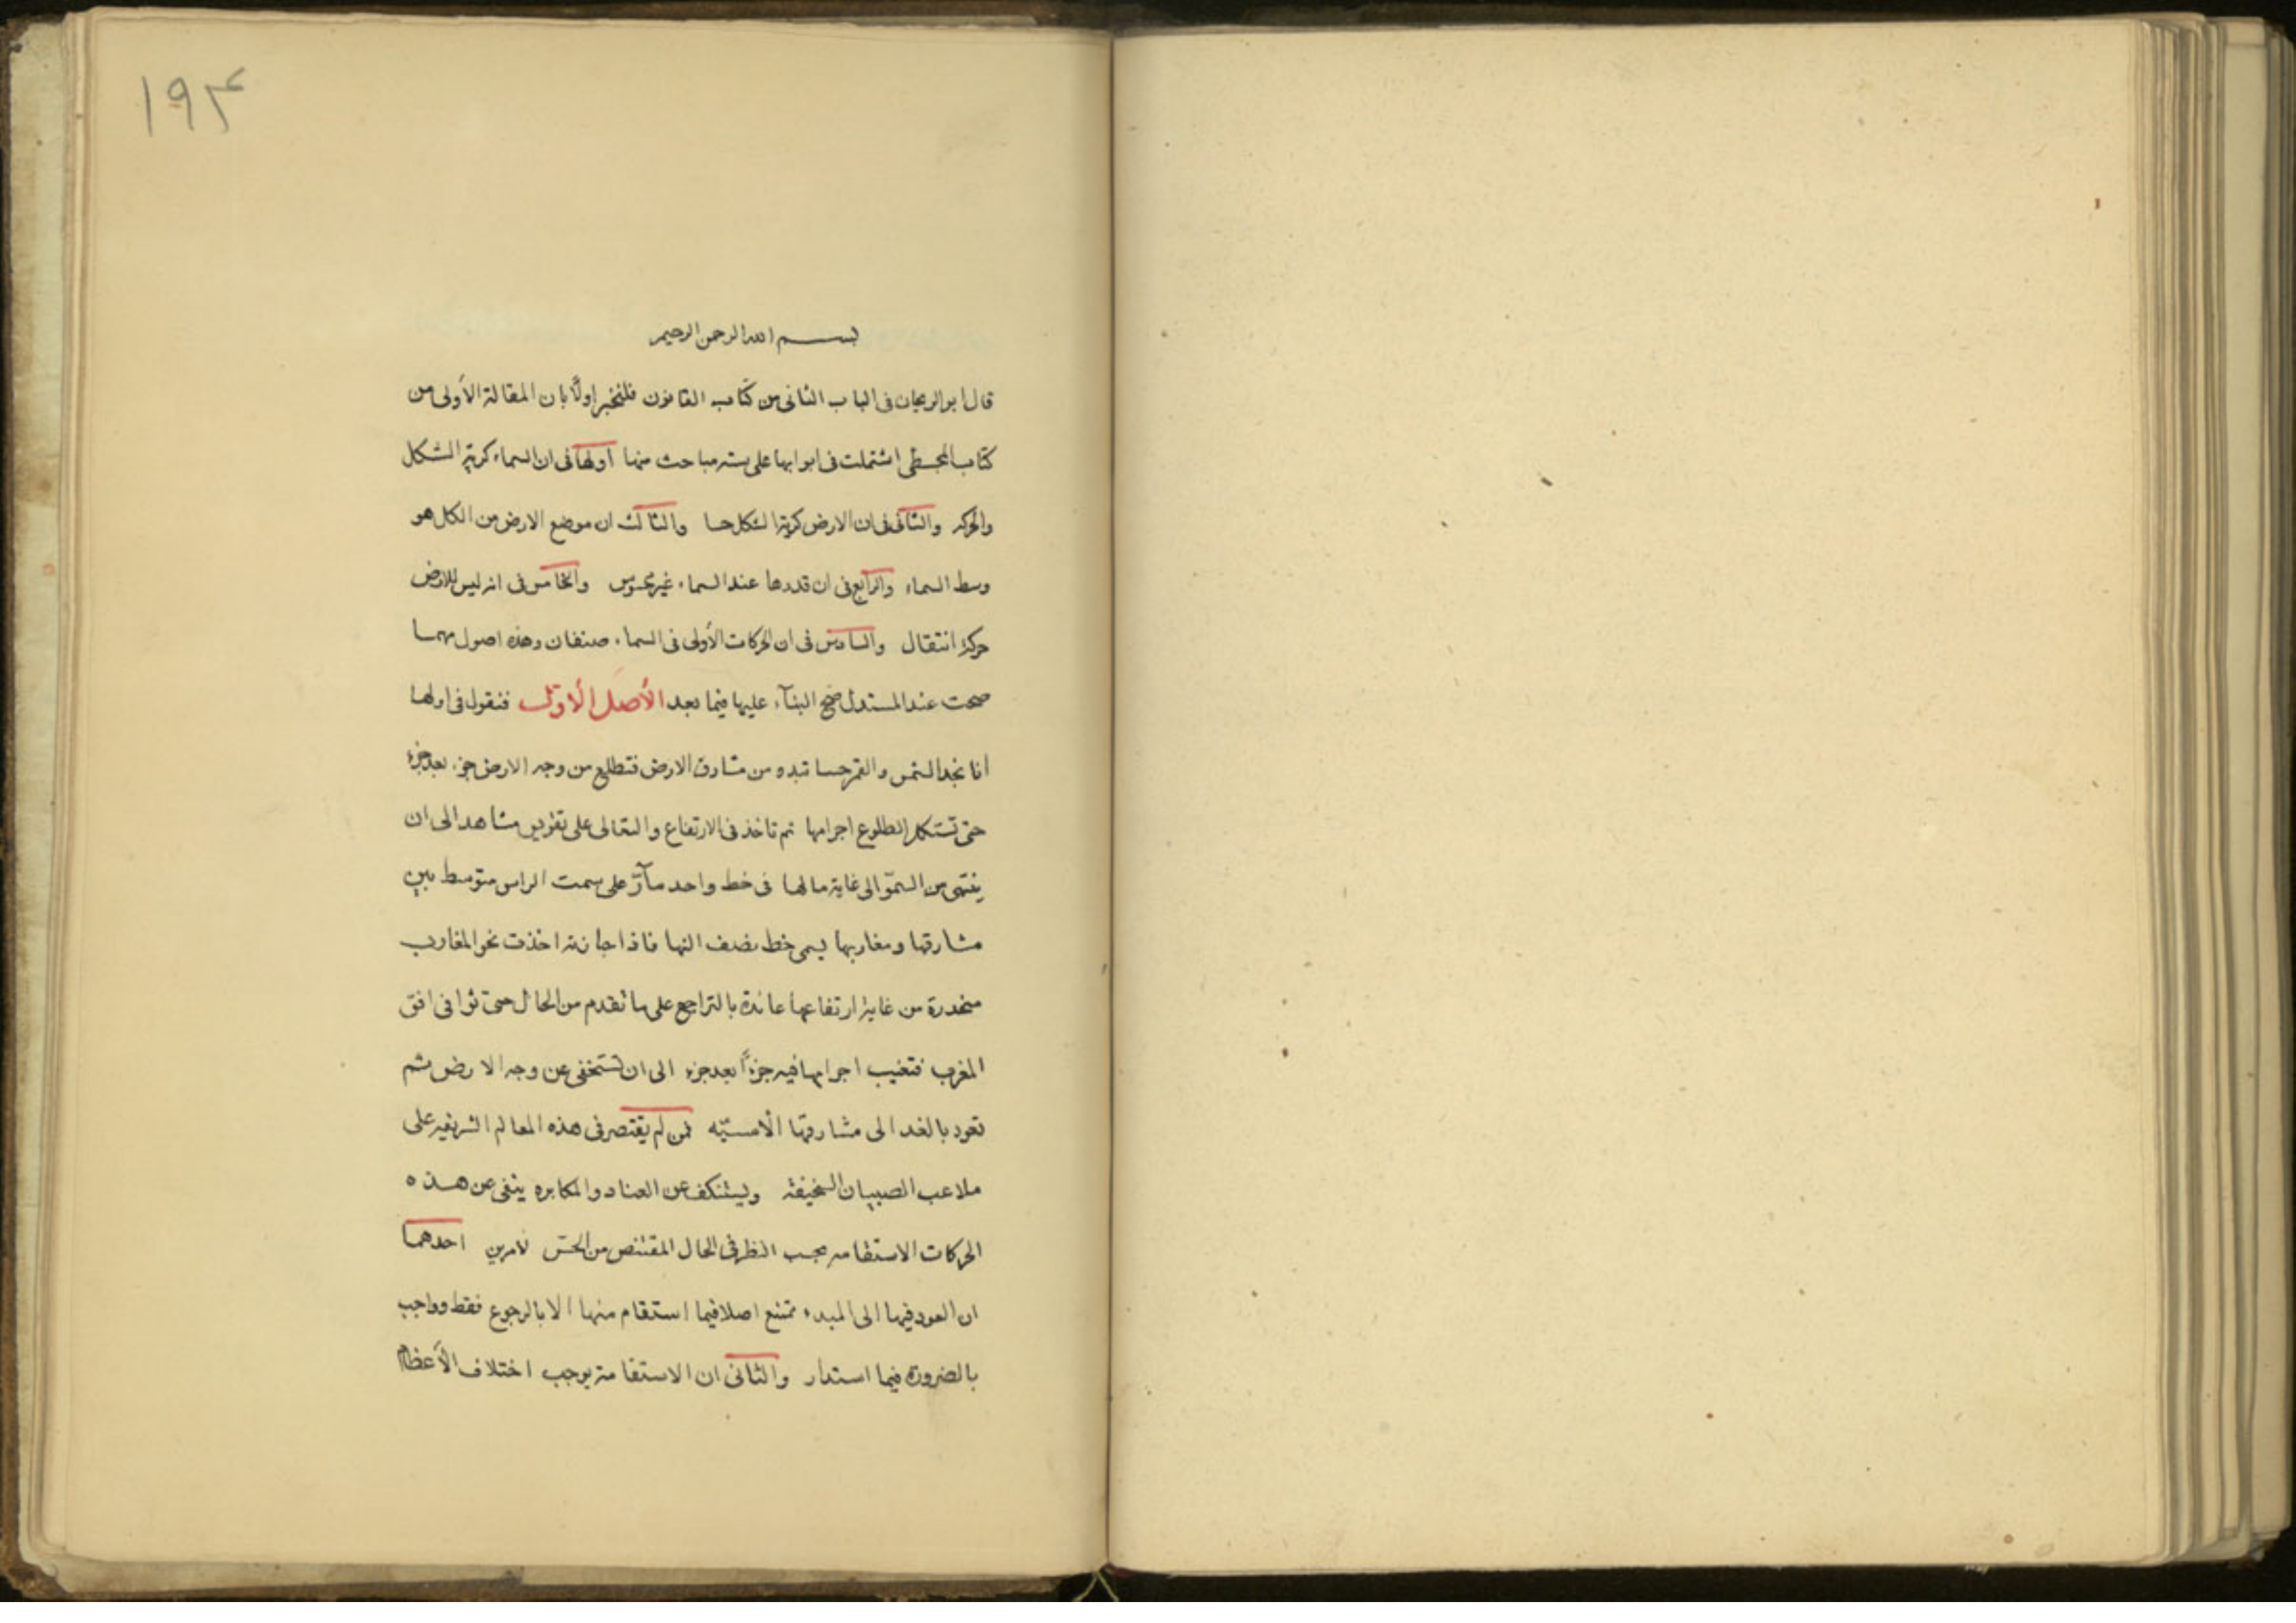 ۱۹۴
بسم الله الرحمن الرحيم
قال ابو الريحان فى الباب الثانى من كتاب القانون فلنخبر اولًا بان المقالة الأولى من
كتاب المجسطى اشتملت فى ابوابها على ستة مباحث منها أولها فى ان السماء كرية الشكل
والحركه والثانى فى ان الارض كرية الشكل حسا والثالث ان موضع الارض من الكل هو
وسط السماء والرابع فى ان قدرها عند السماء غير محسوس والخامس فى انه ليس للارض
حركة انتقال والسادس فى ان الحركات الأولى فى السماء صنفان وهذه اصول مهما
صحت عند المستدل صح البنآء عليها فيما بعد الأصل الأول فنقول فى اولها
انا نجد الشمس والقمر حسا تبدو من مشارق الارض فتطلع من وجه الارض جزء بعد جزء
حتى تستكمل الطلوع اجرامها ثم تاخذ فى الارتفاع والتعالى على تقويس مشاهد الى ان
ينتهى من السموّ الى غاية مالها فى خط واحد مآرّ على سمت الراس متوسط بين
مشارقها ومغاربها يسمى خط نصف النها فاذا جازته اخذت نحو المغارب
منحدرة من غاية ارتفاعها عائدة بالتراجع على ما تقدم من الحال حتى توافى افق
المغرب فتغيب اجرامها فيه جزءًا بعد جزء الى ان تستخفى عن وجه الارض ثم
تعود بالغد الى مشارقها الأمسيّه فمن لم يقتصر فى هذه المعالم الشريفه على
ملاعب الصبيان السخيفة ويستنكف عن العناد والمكابره ينفى عن هذه
الحركات الاستقامه بحسب النظر فى الحال المقتنص من الحسّ لامرين احدهما
ان العود فيها الى المبدء ممتنع اصلا فيما استقام منها الا بالرجوع فقط وواجب
بالضرورة فيما استدار والثانى ان الاستقامة يوجب اختلاف الأعظام